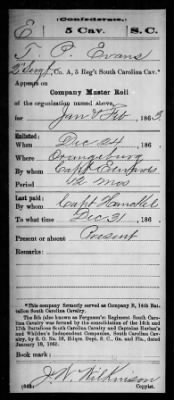 (Confederate.)
E 5 Cav. S.C.
T. P. Evans
2 Sergt, Co. A, 5 Reg't South Carolina Cav.*
Appears on
Company Muster Roll
of the organization named above,
for Jan & Feb, 1863.
Enlisted:
When Dec 24, 186
Where Orangeburg
By whom Capt Edwards
Period 12 mos
Last paid:
By whom Capt
To what time Dec 31, 186
Present or absent Present
Remarks:
*This company formerly served as Company B, 14th Battalion South Carolina Cavalry.
The 5th (also known as Ferguson's) Regiment South Carolina
Cavalry was formed by the consolidation of the 14th and
17th Battalions South Carolina Cavalry and Captains Harlan's
and Whilden's Independent Companies, South Carolina Cavalry,
by S. O. No. 18, Hdqrs. Dept. S. C., Ga. and Fla., dated
January 18, 1863.
Book mark:
J. W. Wilkinson
(642) Copyist.